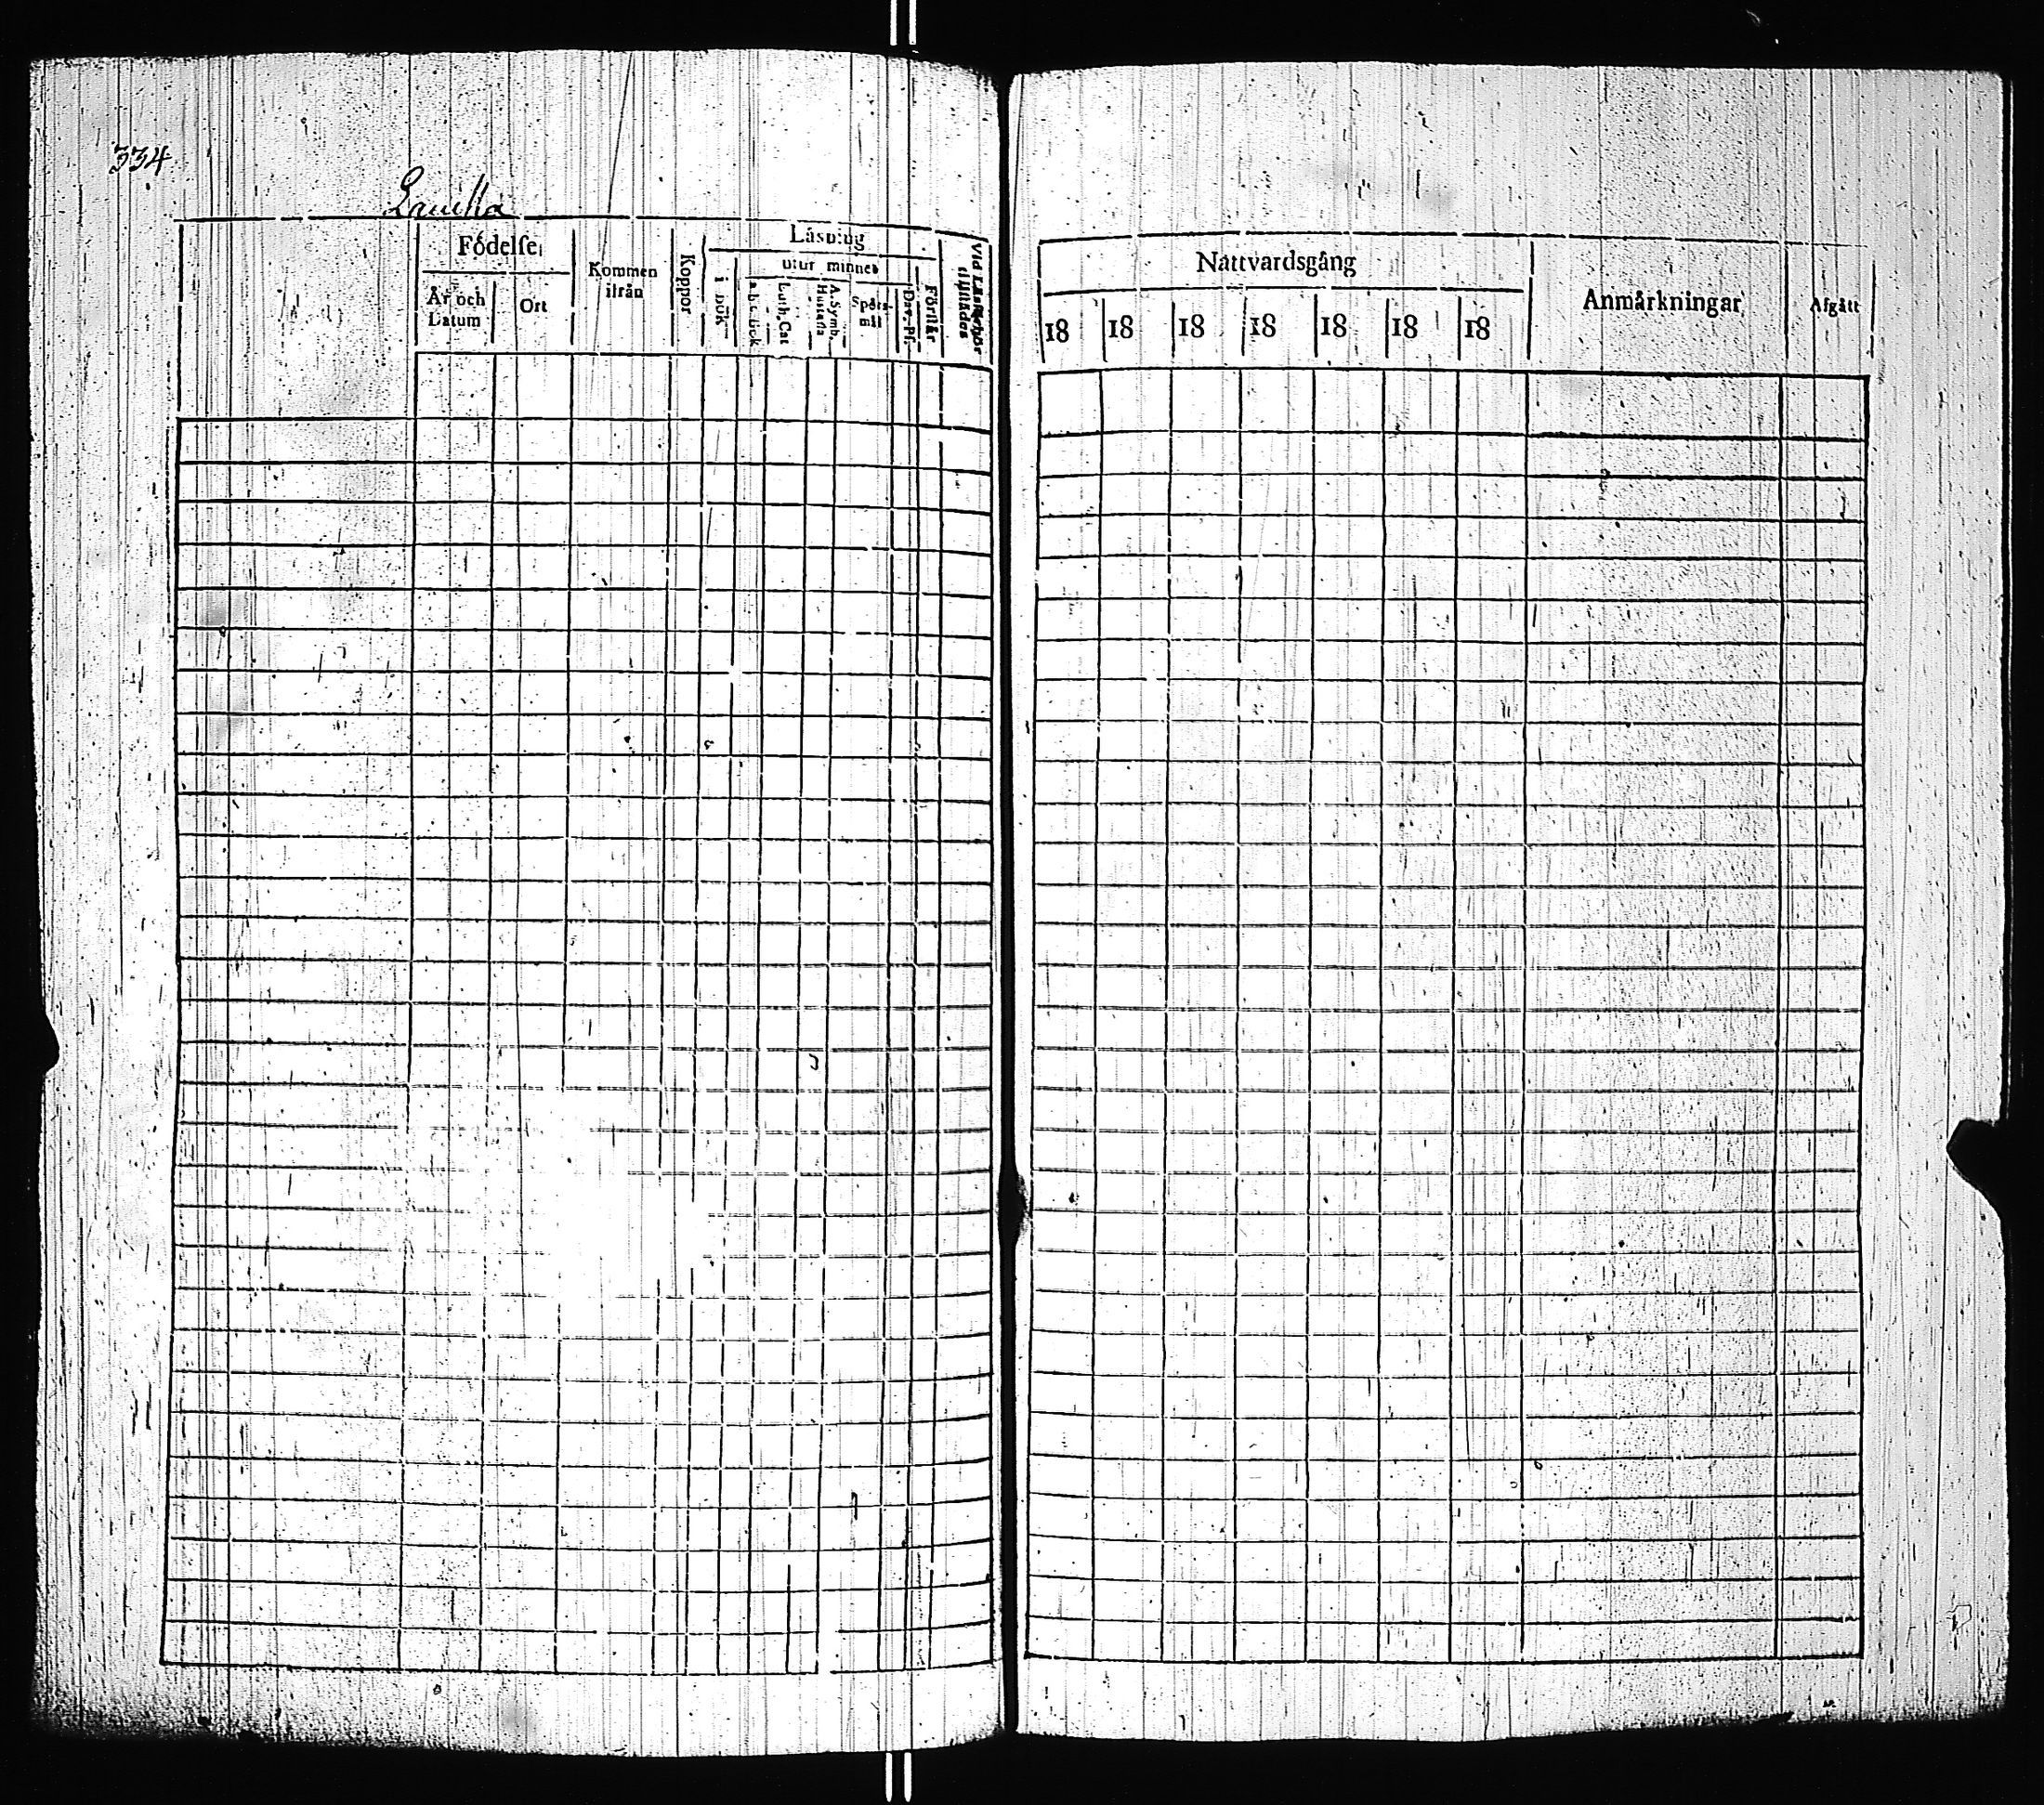 334
Lauilla
Födelse
År och Datum
Ort
Kommen ifrån
Koppor
Läsning
i bok
utur minnet
a b c bok
Luth. Cat
A. Symb. Hustafla
Spörs-mål
Dav. Ps.
Förstår
Vid Läsförhör tillstädes
Nattvardsgång
18 18 18 18 18 18 18
Anmärkningar
Afgått